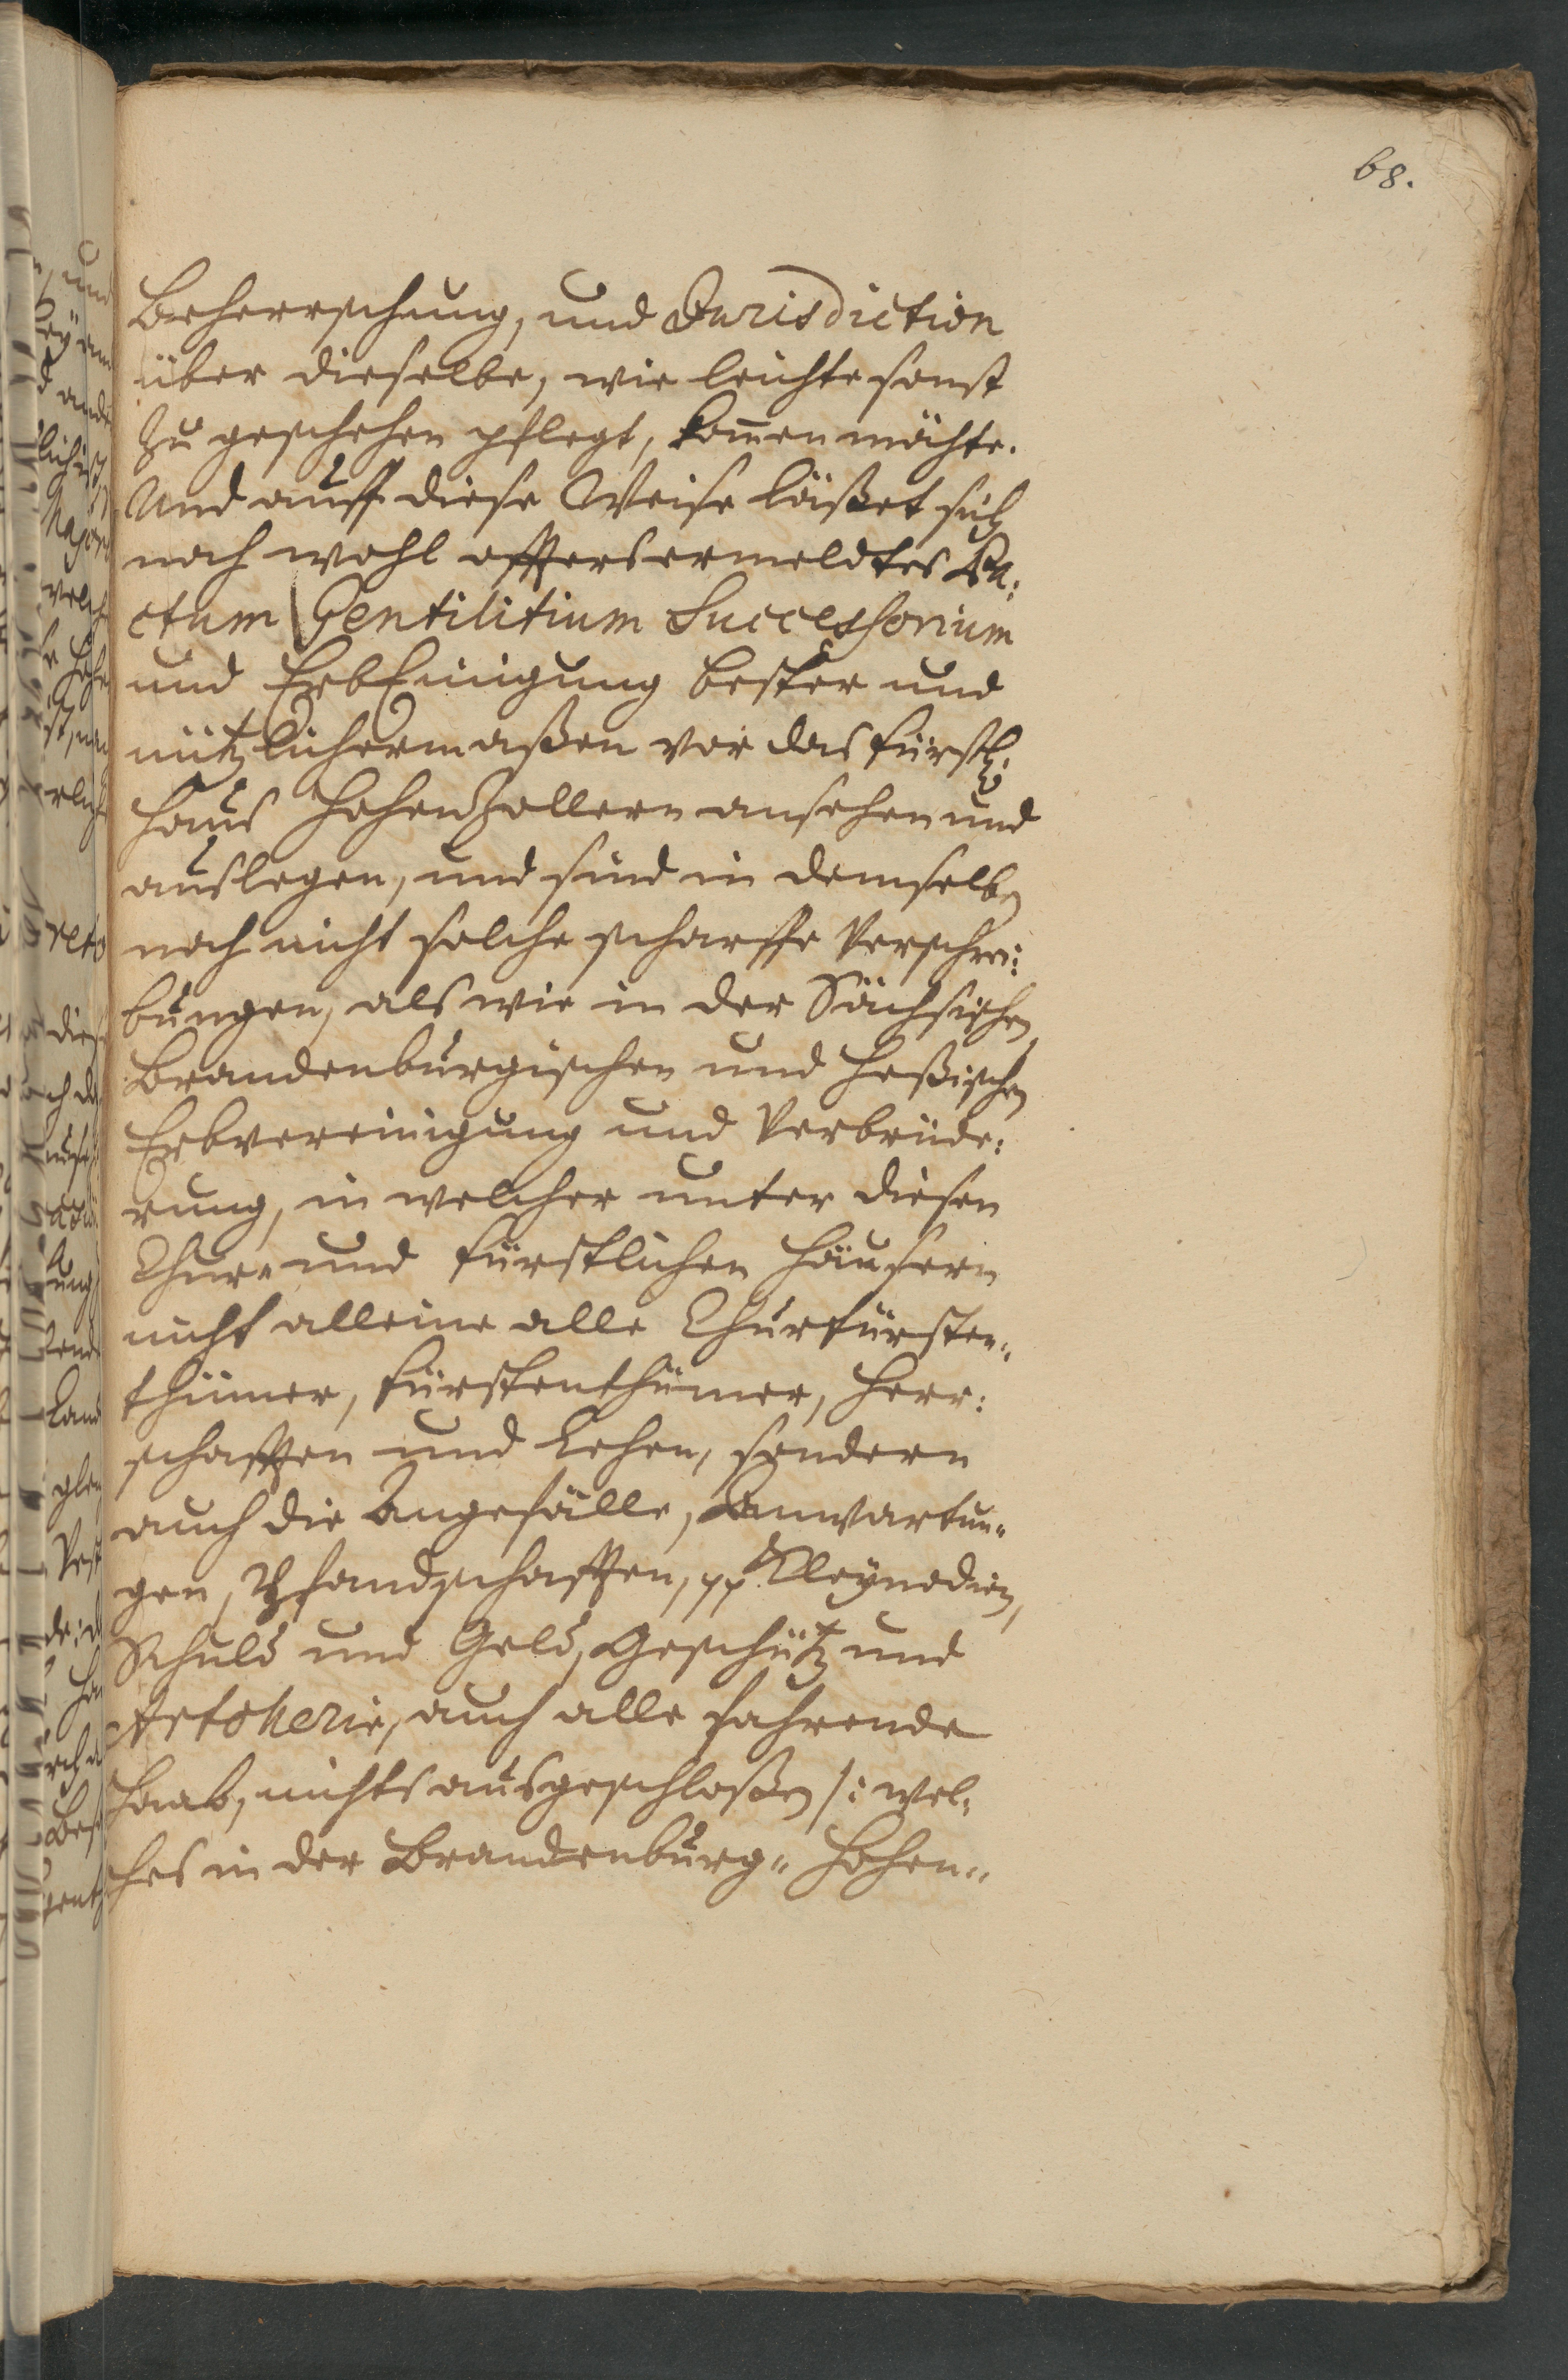 68.
Beherrschung, und Jurisdiction
über dieselbe, wie leichte sonst
zu geschehen pflegt, kom̄en möchte.
Und auff diese Weise läßet sich
noch wohl offterermeldtes Pa:
ctum Gentilitium Successorium
und ErbEinigung bester und
nützlichermaßen vor das fürstl:
Hauß Hohenzollern ansehen und
auslegen, und sind in demselben
noch nicht solche scharffe Verschrei:
bungen, als wie in der Sächsischen
Brandenburgischen und Heßischen
Erbvereinigung und Verbrüde:
rung, in welcher unter diesen
Chur- und fürstlichen Häusern
nicht alleine alle Churfürsten-
thümer, Fürstenthümer, Herr:
schafften und Lehen, sondern
auch die Angefälle, Anwartun-
gen, Pfandschafften, pp Kleynodien,
Schuld und Geld, Geschütz und
Artollerie, auch alle fahrende
Haab, nichts ausgeschloßen /: wel-
ches in der Brandenburg- Hohen-